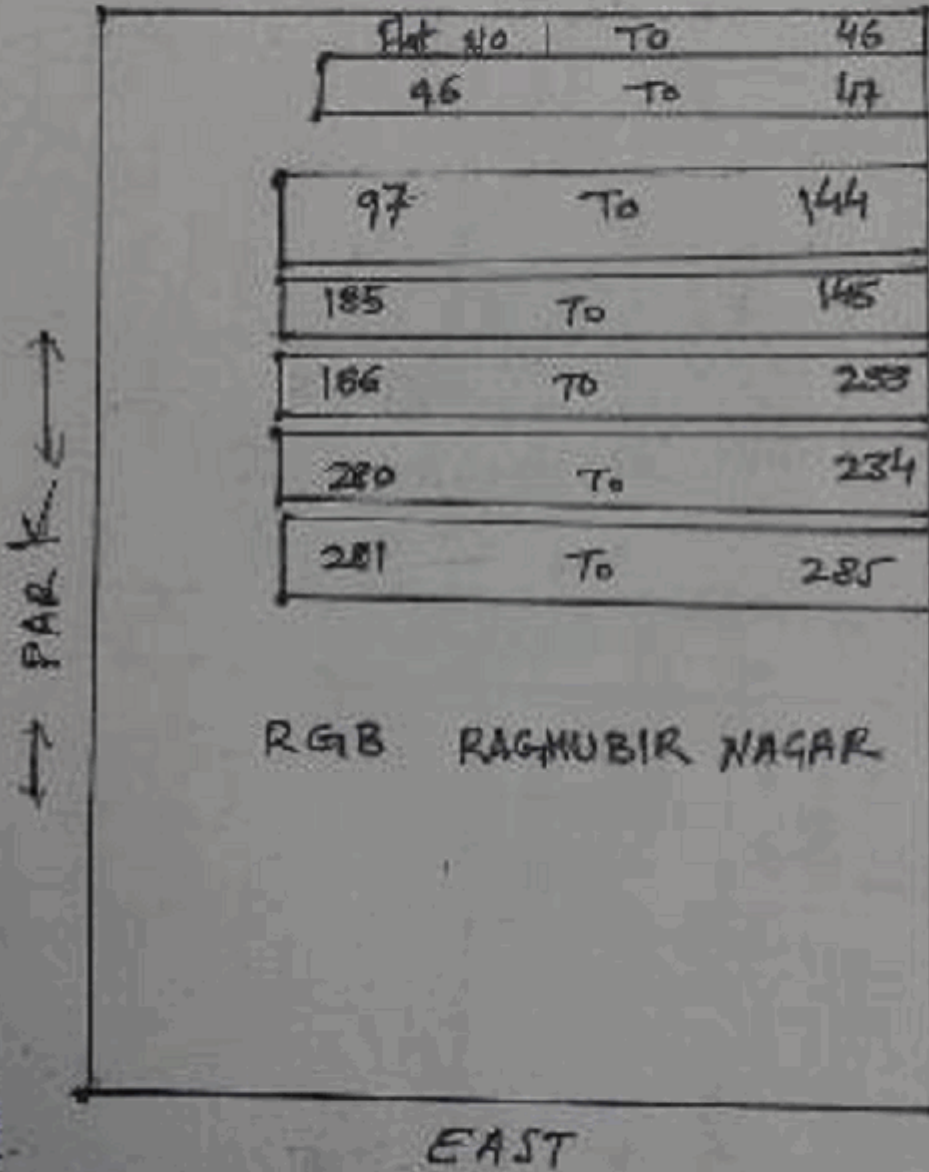 Flat NO 1 TO 46
96 To 47
97 To 144
185 To 145
186 TO 233
280 To 234
281 To 285
PARK
RGB RAGHUBIR NAGAR
EAST